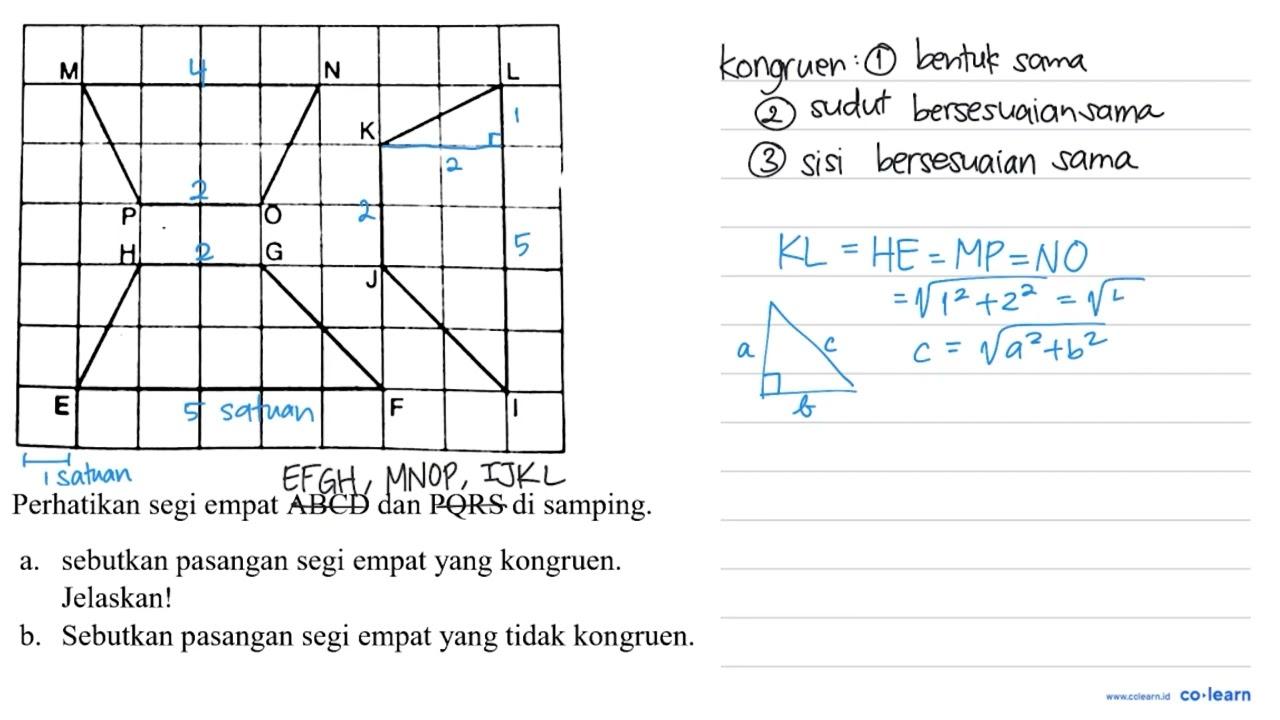 M 4 N L
1
K
2
2
P O 2
H 2 G 5
J
E 5 satuan F I
1 satuan
EFGH, MNOP, IJKL
Perhatikan segi empat ABCD dan PQRS di samping.
a. sebutkan pasangan segi empat yang kongruen.
Jelaskan!
b. Sebutkan pasangan segi empat yang tidak kongruen.
kongruen: ① bentuk sama
② sudut bersesuaian sama
③ sisi bersesuaian sama
KL = HE = MP = NO
= √1² + 2² = √
a c c = √a² + b²
b
www.colearn.id co·learn